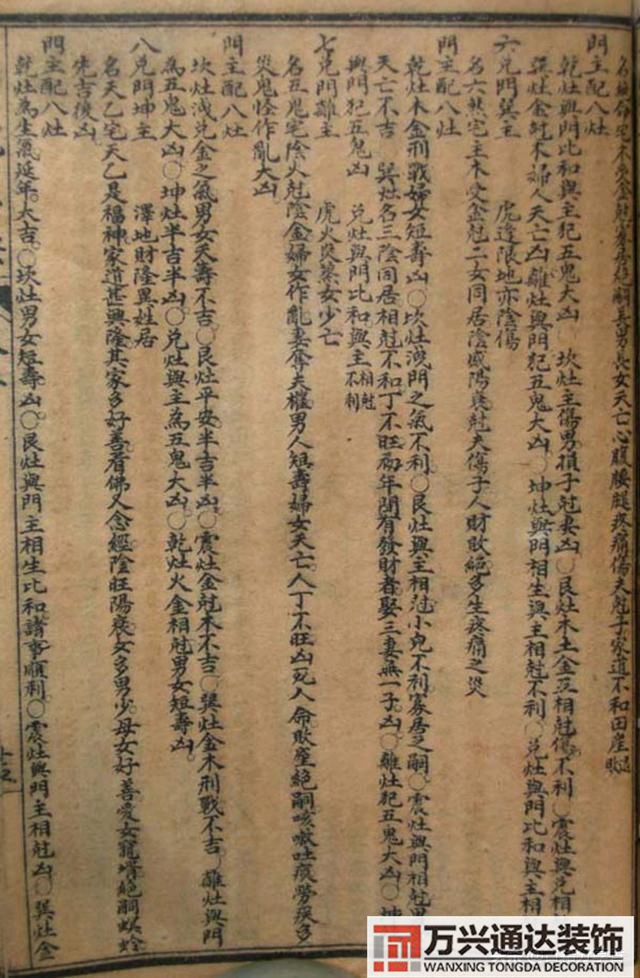 名絶命宅木受金尅寡居絶嗣長男長女夭亡心腹腰腿疼痛傷夫尅子家道不和田産退敗
門主配八灶
乾灶與門比和與主犯五鬼大凶 坎灶主傷男損子尅妻凶〇艮灶木土金互相尅傷不利〇震灶與兌相
巽灶金尅木婦人夭亡凶〇離灶與門犯五鬼大凶〇坤灶與門相生與主相尅不利〇兌灶與門比和與主相
六兌門巽主 虎逢限地亦陰傷
名六煞宅主木受金尅二女同居陰盛陽衰尅夫傷子人財敗絶多生疼痛之災
門主配八灶
乾灶木金刑戰婦女短壽凶〇坎灶洩門之氣不利〇艮灶與主相尅小兒不利寡居乏嗣〇震灶與門相尅男
夭亡不吉 巽灶名三陰同居相尅不和丁不旺兩年間有發財者娶三妻無一子凶〇離灶犯五鬼大凶〇坤
與門犯五鬼凶 兌灶與門比和與主相尅不利
七兌門離主 虎火炎蒸女少亡
名五鬼宅陰火尅陰金婦女作亂妻奪夫權男人短壽婦女夭亡人丁不旺凶死人命敗産絶嗣咳嗽吐痰勞疾多
災鬼怪作亂大凶
門主配八灶
坎灶洩兌金之氣男女夭壽不吉〇艮灶平安半吉半凶〇震灶金尅木不吉〇巽灶金木刑戰不吉 離灶與門
為五鬼大凶〇坤灶半吉半凶〇兌灶與主為五鬼大凶〇乾灶火金相尅男女短壽凶
八兌門坤主 澤地財隆異姓居
名天乙宅天乙是福神家道甚興隆其家多好善看佛又念經陰旺陽衰女多男少母女好善愛女寵壻絶嗣螟蛉
先吉後凶
門主配八灶
乾灶為生氣延年大吉〇坎灶男女短壽凶〇艮灶與門主相生比和諸事順利〇震灶與門主相尅凶〇巽灶金
万兴通达装饰
WANXING TONGDA DECORATION